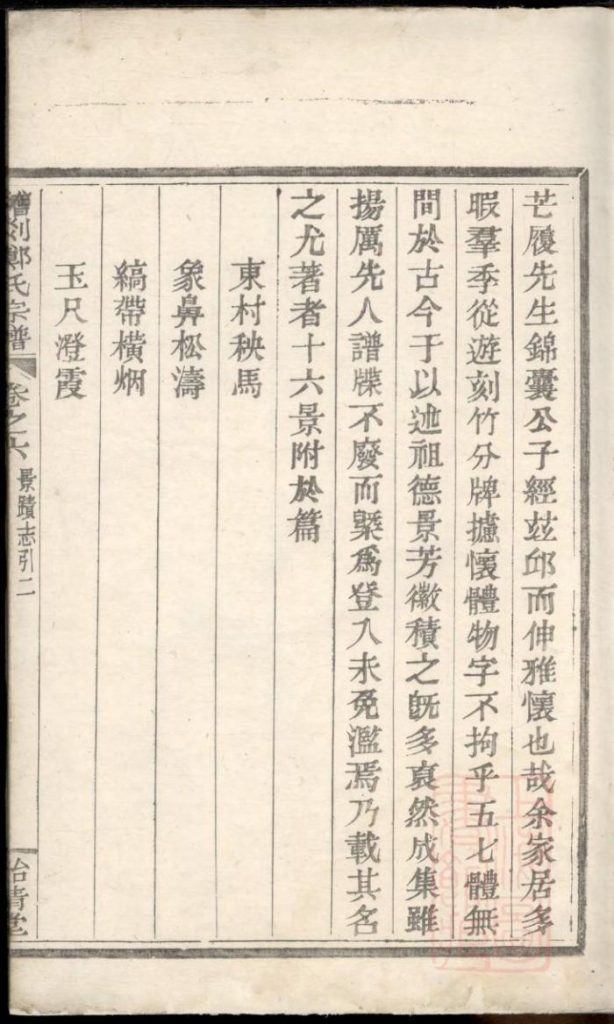 芒履先生錦囊公子經茲邱而伸雅懷也哉余家居多
暇羣季從遊刻竹分牌攄懷體物字不拘乎五七體無
間於古今于以述祖德景芳徽積之旣多裒然成集雖
揚厲先人譜牒不廢而槩爲登入未免濫焉乃載其名
之尤著者十六景附於篇
東村秧馬
象鼻松濤
縞帶橫烟
玉尺澄霞
剡鄭氏宗譜
卷之六
景蹟志引二